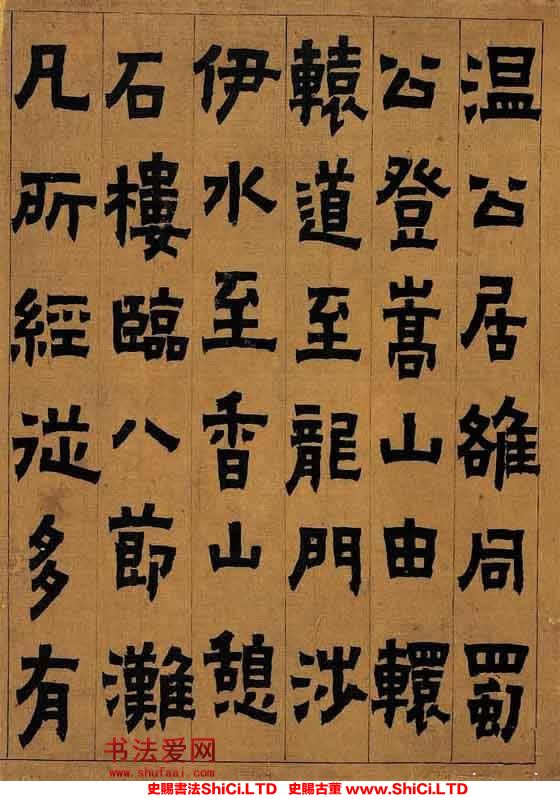 温公居雒同蜀
公登嵩山由轘
轅道至龍門涉
伊水至香山憩
石樓臨八節灘
凡所經從多有
书法爱网
www.shufaai.com
史賜書法ShiCi.LTD 史賜古董 www.ShiCi.LTD